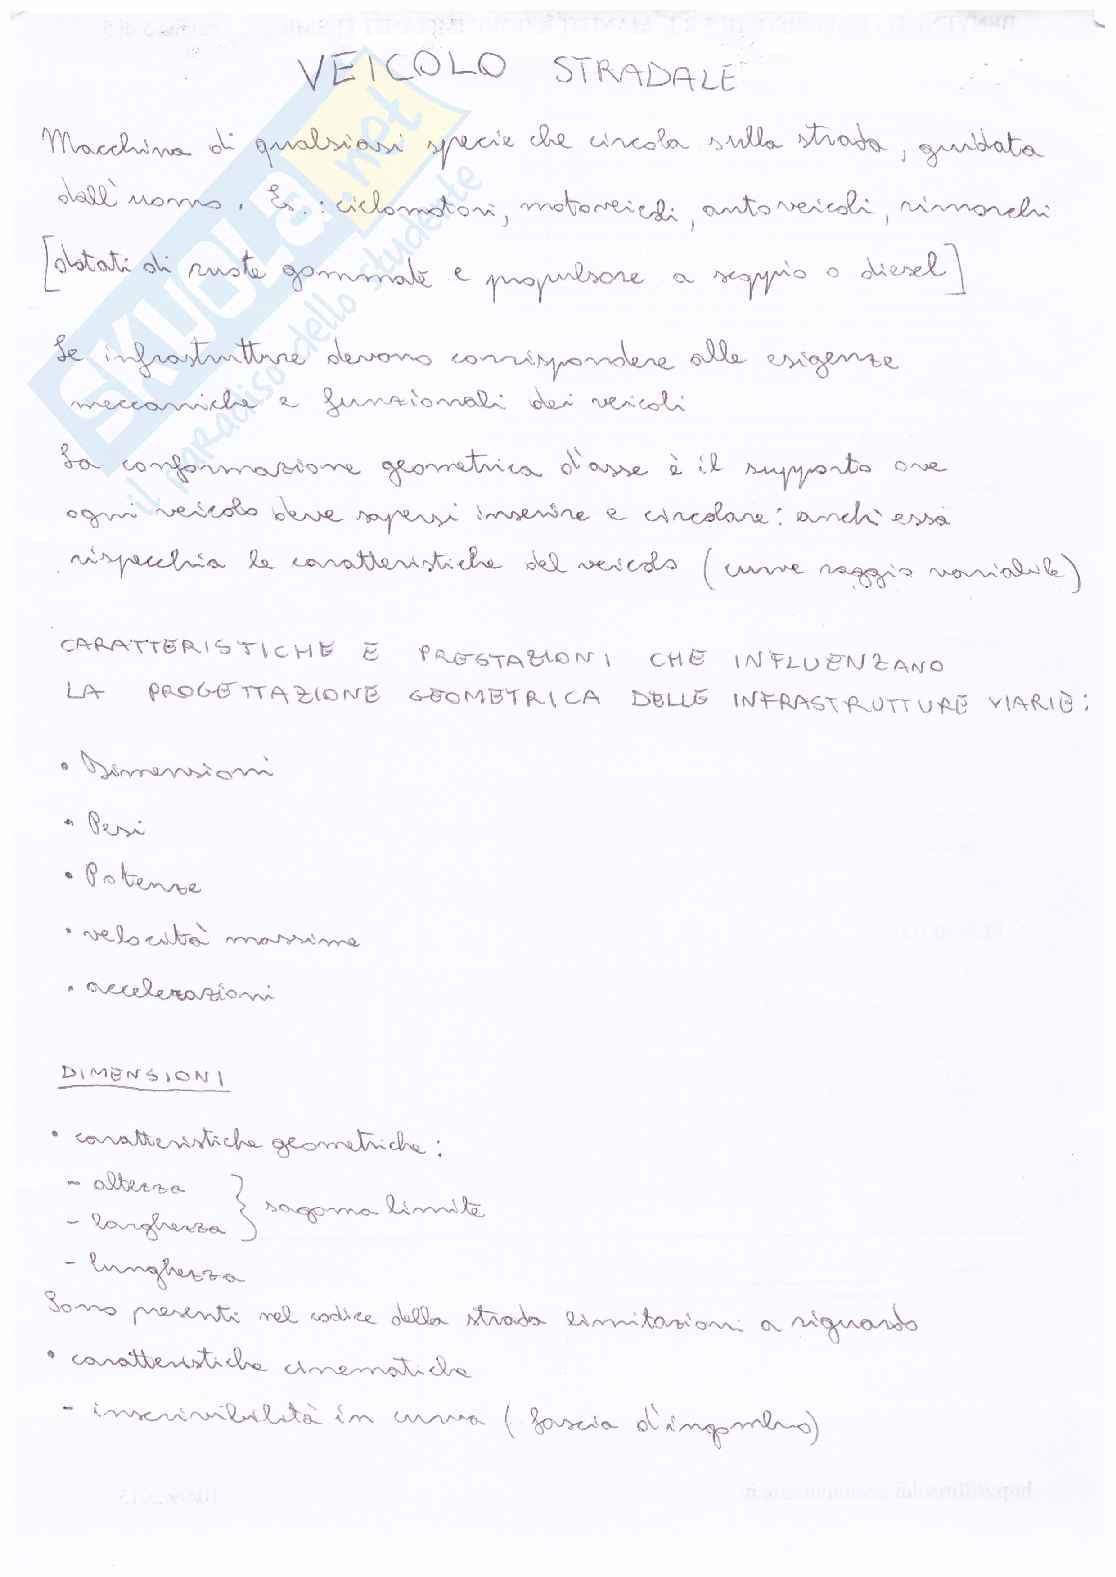 VEICOLO STRADALE
Macchina di qualsiasi specie che circola sulla strada, guidata
dall'uomo. Es.: ciclomotori, motoveicoli, autoveicoli, rimorchi
[dotati di ruote gommate e propulsore a scoppio o diesel]
Le infrastrutture devono corrispondere alle esigenze
meccaniche e funzionali dei veicoli
La conformazione geometrica d'asse è il supporto ove
ogni veicolo deve sapersi inserire e circolare: anch'essa
rispecchia le caratteristiche del veicolo (curve raggio variabile)
CARATTERISTICHE E PRESTAZIONI CHE INFLUENZANO
LA PROGETTAZIONE GEOMETRICA DELLE INFRASTRUTTURE VIARIE:
• Dimensioni
• Pesi
• Potenze
• velocità massime
• accelerazioni
DIMENSIONI
• caratteristiche geometriche:
- altezza
- larghezza } sagoma limite
- lunghezza
Sono presenti nel codice della strada limitazioni a riguardo
• caratteristiche cinematiche
- inscrivibilità in curva (fascia d'ingombro)
SKUOLA.net
il paradiso dello studente